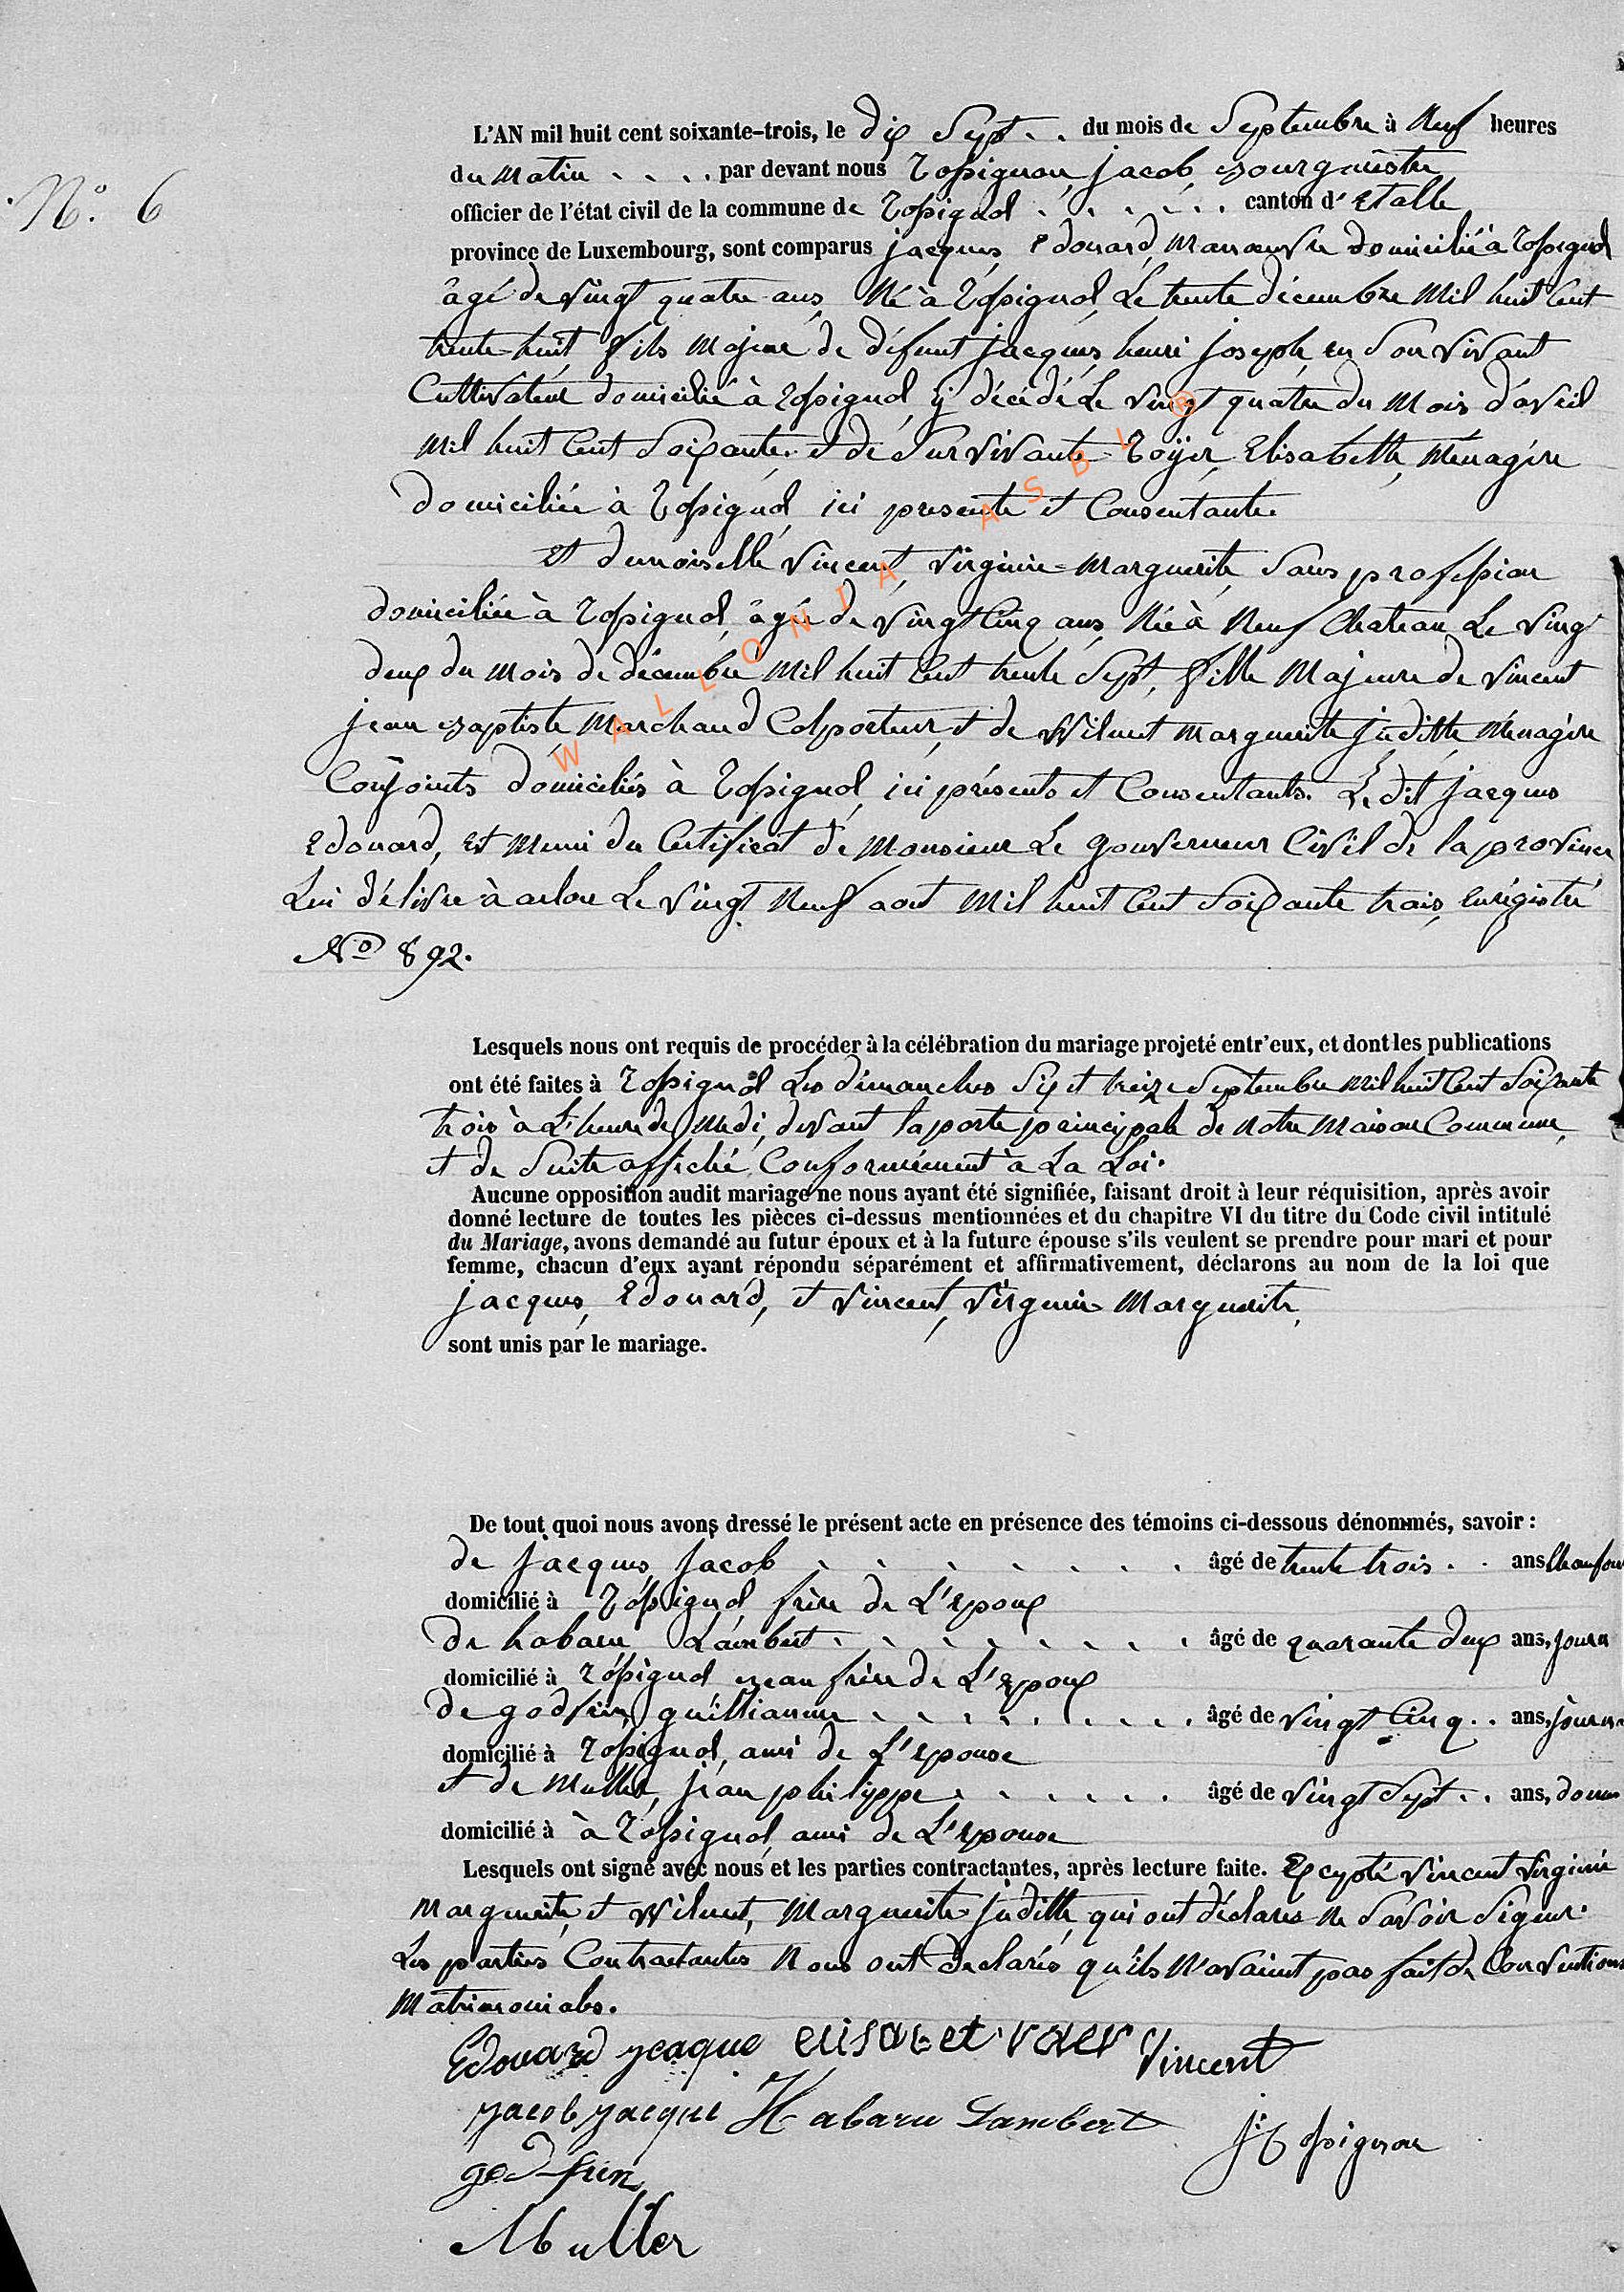 N.° 6
L'AN mil huit cent soixante-trois, le dix Sept . . du mois de Septembre à Neuf heures
du Matin . . . . par devant nous Rossignon, jacob, Bourgmestre
officier de l'état civil de la commune de Rossignol . . . . . . canton d'Etalle
province de Luxembourg, sont comparus jacques, Edouard, Manœuvre domicilié à Rossignol
âgé de vingt quatre ans, Né à Rossignol, Le trente décembre Mil huit Cent
trente-huit, fils Majeur de défunt jacques, henri joseph, en Son vivant
Cultivateur domicilié à Rossignol, y décédé Le vingt quatre du Mois d'avril
Mil huit Cent Soixante. et de Survivante Royer, Elisabeth, Ménagère
domiciliée à Rossignol, ici presente et Consentante.
Et demoiselle Vincent, Virginie-Marguerite, Sans profession
domiciliée à Rossignol, âgée de vingt Cinq ans, Née à Neuf Chateau Le ving
deux du Mois de décembre Mil huit Cent trente Sept, fille Majeure de Vincent
jean Baptiste Marchand Colporteur, et de Wilmet Marguerite juditte, Ménagère
Conjoints domiciliés à Rossignol, ici présents et Consentants. Le dit jacques
Edouard, est Muni du Certificat de Monsieur Le gouverneur Civil de la province
Lui délivré à arlon Le vingt Neuf aout Mil huit Cent Soixante trois, enrégistré
N° 892.
Lesquels nous ont requis de procéder à la célébration du mariage projeté entr'eux, et dont les publications
ont été faites à Rossignol Les dimanches Six et treize Septembre Mil huit Cent Soixante
trois à L'heure de Midi, devant la porte principale de Notre Maison Commune,
et de Suite affiché Conformément à La Loi.
Aucune opposition audit mariage ne nous ayant été signifiée, faisant droit à leur réquisition, après avoir
donné lecture de toutes les pièces ci-dessus mentionnées et du chapitre VI du titre du Code civil intitulé
du Mariage, avons demandé au futur époux et à la future épouse s'ils veulent se prendre pour mari et pour
femme, chacun d'eux ayant répondu séparément et affirmativement, déclarons au nom de la loi que
jacques, Edouard, et Vincent, Virginie Marguerite,
sont unis par le mariage.
De tout quoi nous avons dressé le présent acte en présence des témoins ci-dessous dénommés, savoir :
de jacques, jacob . . . . . . . âgé de trente trois . . ans Chaufour
domicilié à Rossignol frère de L'Epoux
de habaru Lambert . . . . . . . âgé de quarante deux ans, journ
domicilié à Rossignol Beau frère de L'Epoux
de godfrin, guilliaume . . . . . . . âgé de vingt Cinq . . ans, journ
domicilié à Rossignol, ami de L'Epouse
et de Muller, jean philippe . . . . . . âgé de vingt Sept . . ans, doua
domicilié à à Rossignol ami de L'Epouse
Lesquels ont signé avec nous et les parties contractantes, après lecture faite. Excepté Vincent Virginie
Marguerite, et Wilmet, Marguerite juditte, qui ont déclarés ne Savoir Signer.
Les parties Contractantes Nous ont declarés qu'ils N'avaient pas fait de Conventions
Matrimoniales.
Edouard jcaque elisabet roier Vincent
jacob jacque Habaru Lambert
J: Rossignon
godfrin
Muller
WALLONIA ASBL ®